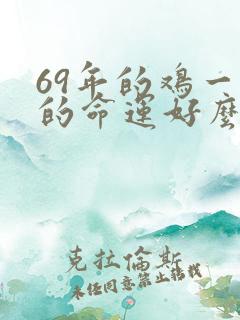 69年的鸡一
的命运好麼
克拉倫斯
未经同意禁止转载